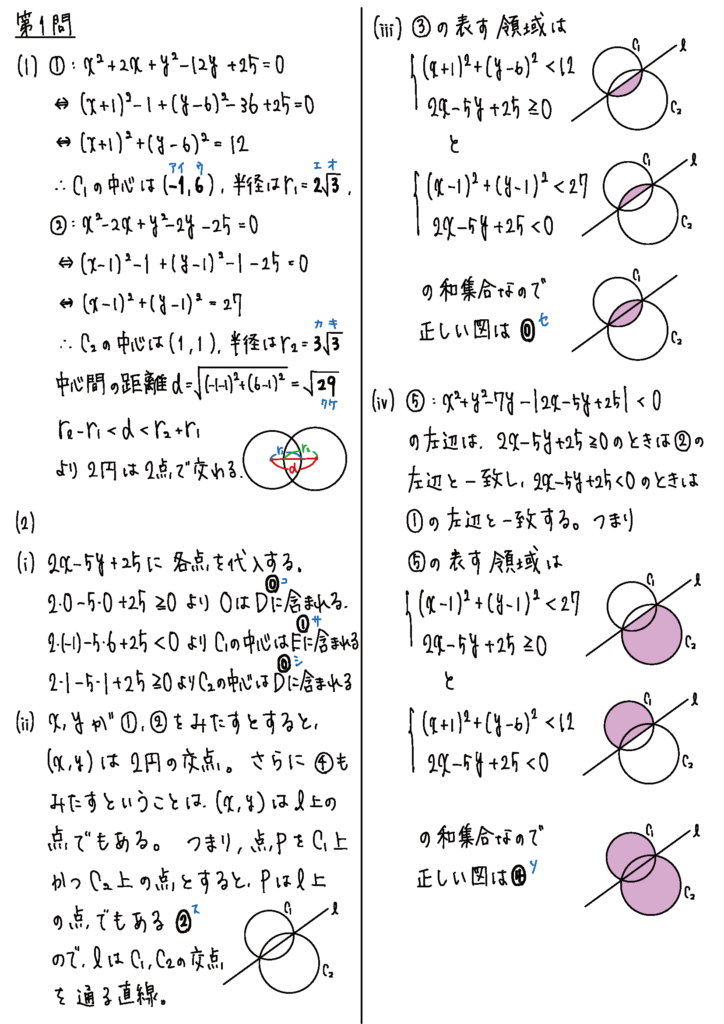 第1問
(1) ①：x²+2x+y²-12y+25=0
⇔ (x+1)²-1+(y-6)²-36+25=0
⇔ (x+1)²+(y-6)²=12
アイ ウ エ オ
∴ C₁の中心は(-1,6), 半径はr₁=2√3,
②：x²-2x+y²-2y-25=0
⇔ (x-1)²-1+(y-1)²-1-25=0
⇔ (x-1)²+(y-1)²=27
カ キ
∴ C₂の中心は(1,1), 半径はr₂=3√3
中心間の距離d=√(-1-1)²+(6-1)²=√29
クケ
r₂-r₁<d<r₂+r₁
より2円は2点で交わる.
r₁ r₂
d
(2)
(i) 2x-5y+25に各点を代入する.
⓪コ
2・0-5・0+25≧0よりOはDに含まれる.
①サ
2・(-1)-5・6+25<0よりC₁の中心はEに含まれる
⓪シ
2・1-5・1+25≧0よりC₂の中心はDに含まれる
(ii) x,yが①,②をみたすとすると,
(x,y)は2円の交点。さらに④も
みたすということは,(x,y)はl上の
点でもある。つまり,点PをC₁上
かつC₂上の点とすると,Pはl上
の点でもある ②ス
ので,lはC₁,C₂の交点
を通る直線。
C₁ l
C₂
(iii) ③の表す領域は
(x+1)²+(y-6)²<12
2x-5y+25≧0
C₁ l
C₂
と
(x-1)²+(y-1)²<27
2x-5y+25<0
C₁ l
C₂
の和集合なので
正しい図は⓪セ
C₁
C₂
(iv) ⑤：x²+y²-7y-|2x-5y+25|<0
の左辺は, 2x-5y+25≧0のときは②の
左辺と一致し,2x-5y+25<0のときは
①の左辺と一致する。つまり
⑤の表す領域は
(x-1)²+(y-1)²<27
2x-5y+25≧0
C₁ l
C₂
と
(x+1)²+(y-6)²<12
2x-5y+25<0
C₁ l
C₂
の和集合なので
正しい図は④ソ
C₁ l
C₂